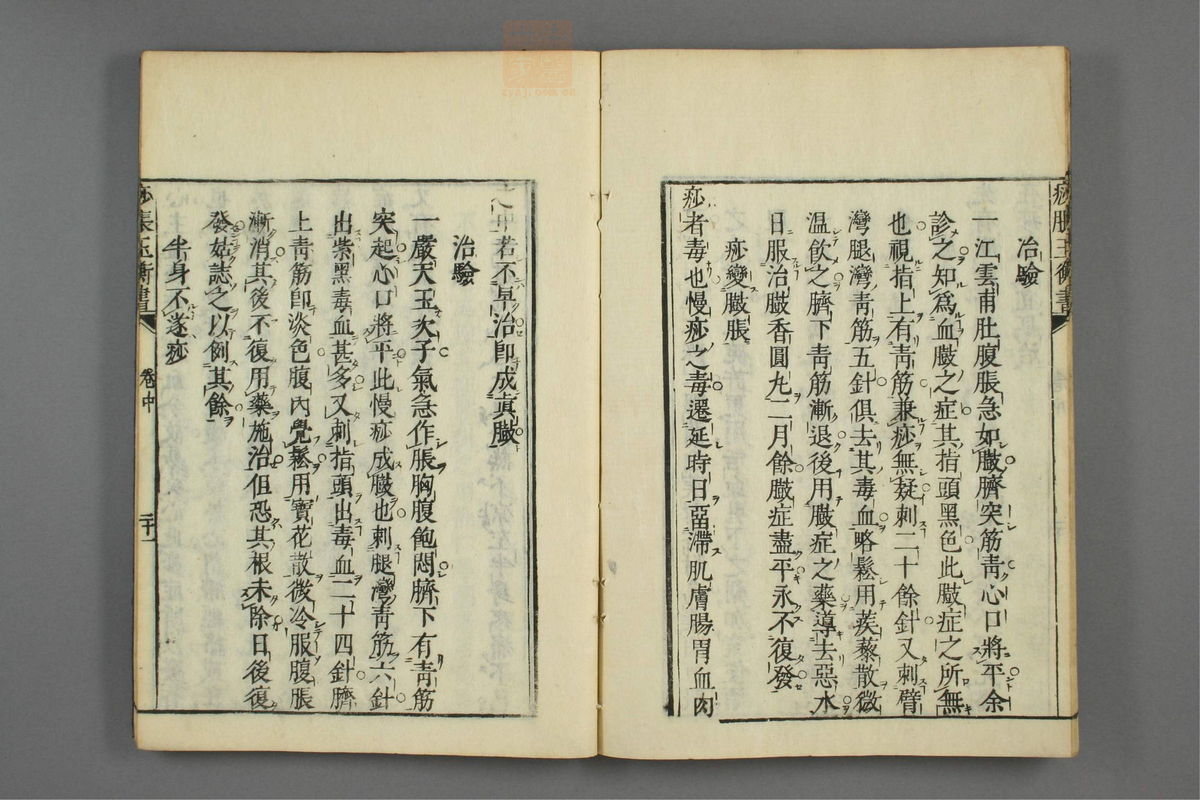 痧脹玉衡書
治驗
一江雲甫肚腹脹急如臌臍突筋青心口將平余
診之知為血臌之症其指頭黑色此臌症之所無
也視指上有青筋兼痧無疑刺二十餘針又刺臂
灣腿灣青筋五針俱去其毒血略鬆用蒺藜散微
温飲之臍下青筋漸退後用臌症之藥導去惡水
日服治臌香圓丸二月餘臌症盡平永不復發
痧變臌脹
痧者毒也慢痧之毒遷延時日留滯肌膚腸胃血肉
之中若不早治卽成真臌
治驗
一嚴天玉次子氣急作脹胸腹飽悶臍下有青筋
突起心口將平此慢痧成臌也刺腿灣青筋六針
出紫黑毒血甚多又刺指頭出毒血二十四針臍
上青筋卽淡色腹內覺鬆用寶花散微冷服腹脹
漸消其後不復用藥施治但恐其根未除日後復
發姑誌之以例其餘
半身不遂痧
痧脹玉衡書
卷中
二十一